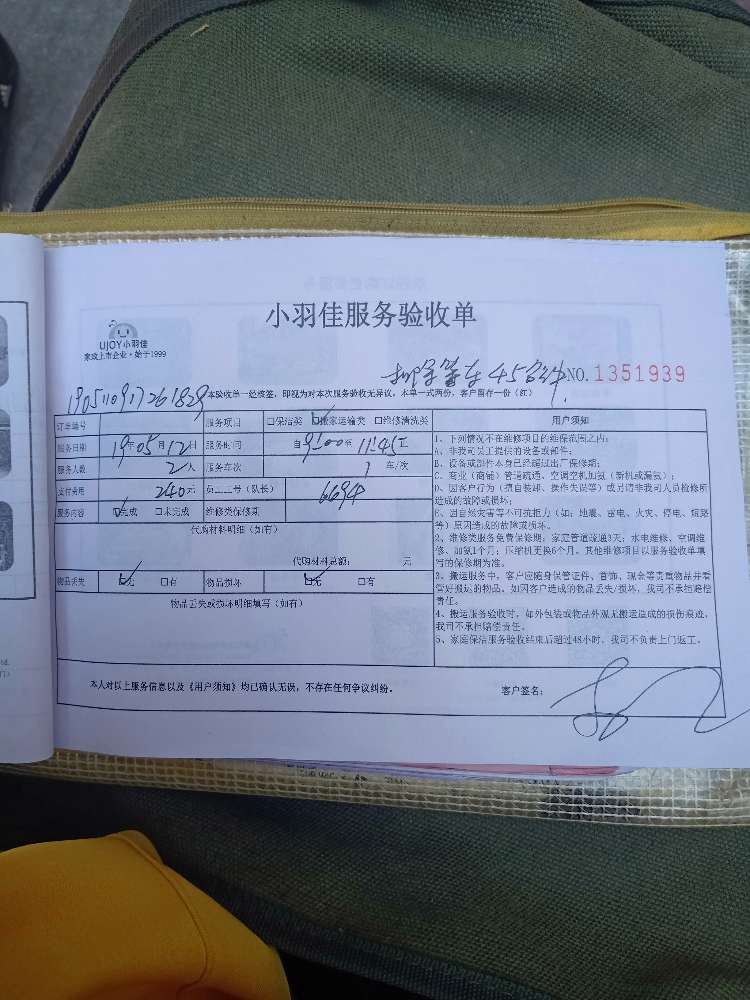 小羽佳服务验收单
UJOY小羽佳
家政上市企业·始于1999
45分钟
NO.1351939
1905110917261829
本验收单一经核签，即视为对本次服务验收无异议，本单一式两份，客户留存一份（红）
订单编号 服务项目 □保洁类 ☑搬家运输类 □维修清洗类 用户须知
服务日期 19年05月12日 服务时间 自9:00至11:45
服务人数 2人 服务车次 1 车/次
支付费用 240元 员工工号（队长） 6694
服务内容 ☑完成 □未完成 维修类保修期
代购材料明细（如有）
代购材料总额： 元
物品丢失 ☑无 □有 物品损坏 ☑无 □有
物品丢失或损坏明细填写（如有）
1、下列情况不在维修项目的维保范围之内：
A、非我司员工提供的设备或部件；
B、设备或部件本身已经超过出厂保修期；
C、商业（商铺）管道疏通、空调空机加氨（新机或漏氨）；
D、因客户行为（擅自装卸、操作失误等）或另请非我司人员检修所
造成的故障或损坏。
E、因自然灾害等不可抗拒力（如：地震、雷电、火灾、停电、短路
等）原因造成的故障或损坏。
2、维修类服务免费保修期：家庭管道疏通3天；水电维修、空调维
修、加氨1个月；压缩机更换6个月。其他维修项目以服务验收单填
写的保修期为准。
3、搬运服务中，客户应随身保管证件、首饰、现金等贵重物品并看
管好搬运的物品。如因客户造成的物品丢失/损坏，我司不承担赔偿
责任。
4、搬运服务验收时，如外包装或物品外观无搬运造成的损伤痕迹，
我司不承担赔偿责任。
5、家庭保洁服务验收结束后超过48小时，我司不负责上门返工。
本人对以上服务信息以及《用户须知》均已确认无误，不存在任何争议纠纷。
客户签名：